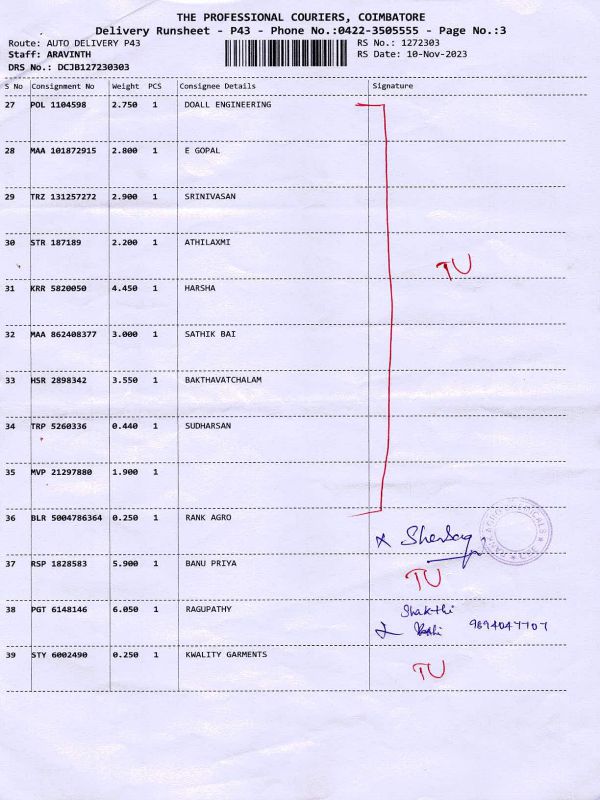 THE PROFESSIONAL COURIERS, COIMBATORE
Delivery Runsheet - P43 - Phone No.:0422-3505555 - Page No.:3
Route: AUTO DELIVERY P43 RS No.: 1272303
Staff: ARAVINTH RS Date: 10-Nov-2023
DRS No.: DCJB127230303
S No Consignment No Weight PCS Consignee Details Signature
27 POL 1104598 2.750 1 DOALL ENGINEERING
28 MAA 101872915 2.800 1 E GOPAL
29 TRZ 131257272 2.900 1 SRINIVASAN
30 STR 187189 2.200 1 ATHILAXMI
TU
31 KRR 5820050 4.450 1 HARSHA
32 MAA 862408377 3.000 1 SATHIK BAI
33 HSR 2898342 3.550 1 BAKTHAVATCHALAM
34 TRP 5260336 0.440 1 SUDHARSAN
35 MVP 21297880 1.900 1
36 BLR 5004786364 0.250 1 RANK AGRO
37 RSP 1828583 5.900 1 BANU PRIYA TU
38 PGT 6148146 6.050 1 RAGUPATHY Shakthi
9894047707
39 STY 6002490 0.250 1 KWALITY GARMENTS TU